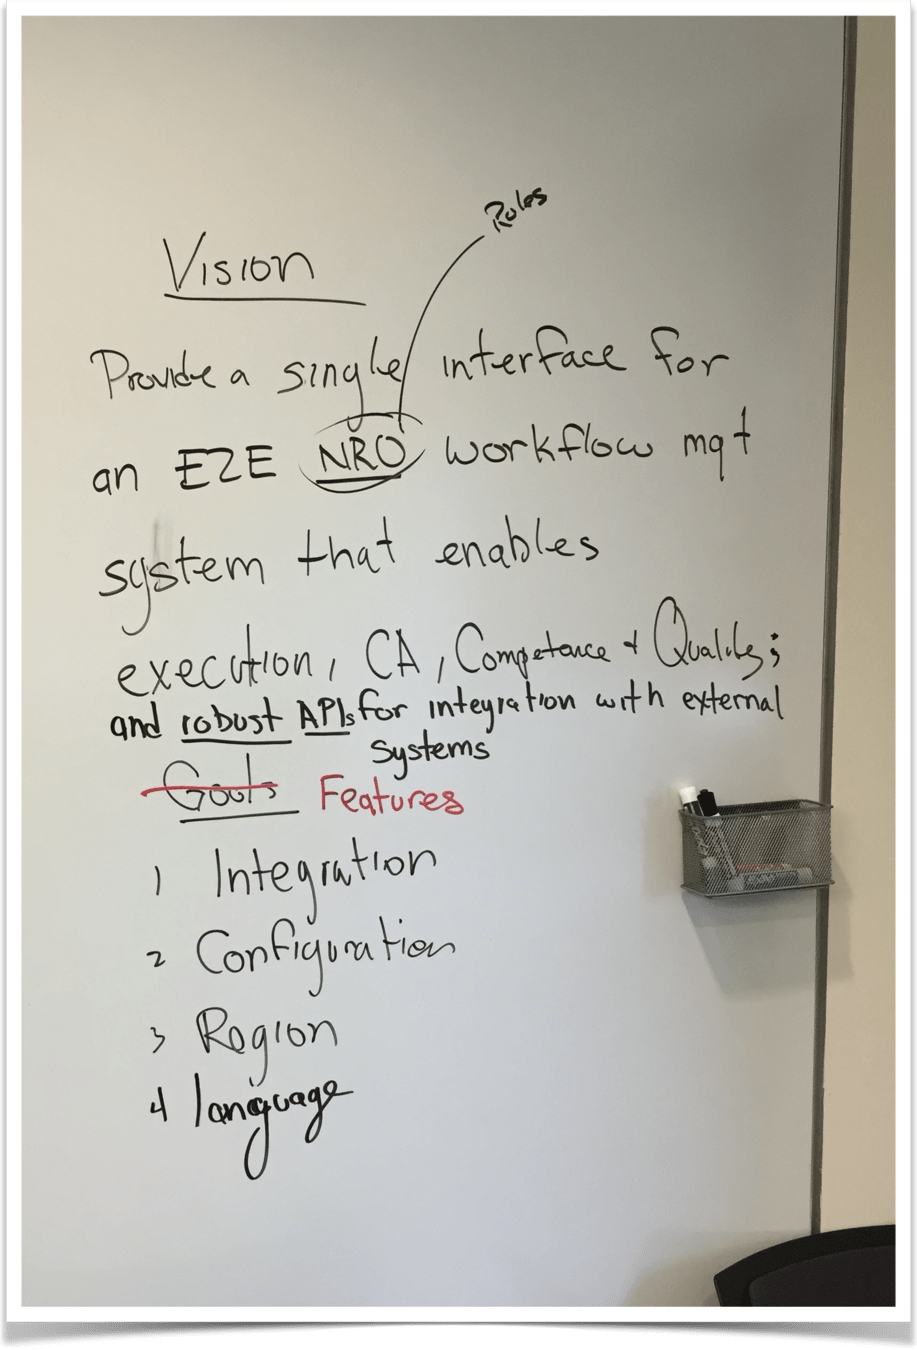 Roles
Vision
Provide a single interface for
an E2E NRO workflow mgt
system that enables
execution, CA, Competence + Quality;
and robust APIs for integration with external
systems
Goals Features
1 Integration
2 Configuration
3 Region
4 language